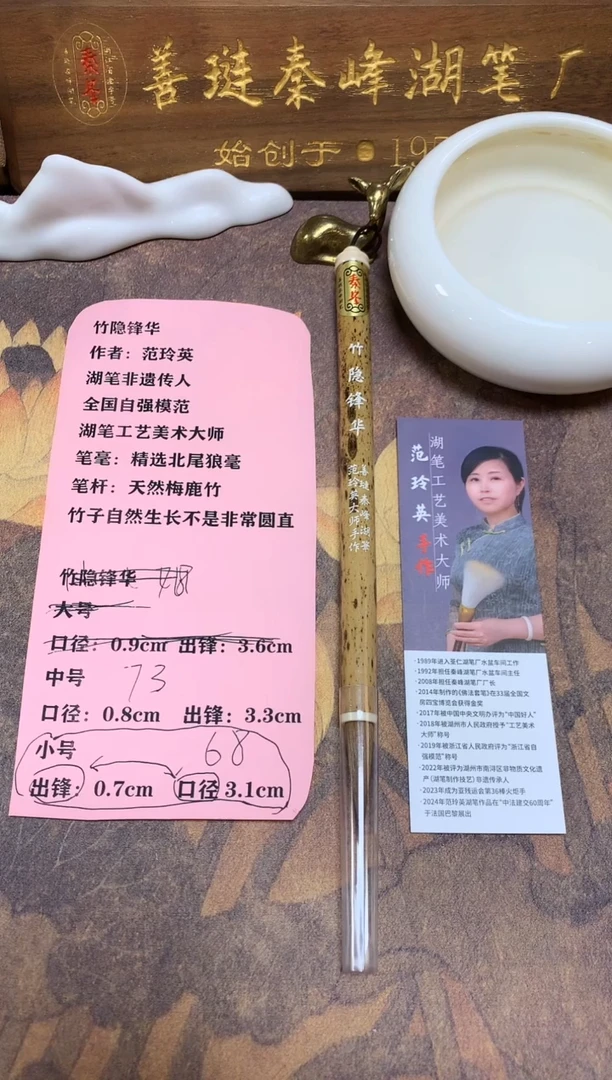 善琏秦峰湖笔厂
始创于●195
秦峰
竹隐锋华
作者：范玲英
湖笔非遗传人
全国自强模范
湖笔工艺美术大师
笔毫：精选北尾狼毫
笔杆：天然梅鹿竹
竹子自然生长不是非常圆直
竹隐锋华
大号
口径：0.9cm 出锋：3.6cm
中号 73
口径：0.8cm 出锋：3.3cm
小号 68
出锋：0.7cm 口径 3.1cm
秦峰
竹隐锋华
善琏秦峰湖笔
范玲英大师手作
湖笔工艺美术大师
范玲英手作
·1989年进入圣仁湖笔厂水盆车间工作
·1992年担任秦峰湖笔厂水盆车间主任
·2008年担任秦峰湖笔厂厂长
·2014年制作的《佛法套笔》在33届全国文
房四宝博览会获得金奖
·2017年被中国中央文明办评为“中国好人”
·2018年被湖州市人民政府授予“工艺美术
大师”称号
·2019年被浙江省人民政府评为“浙江省自
强模范”称号
·2022年被评为湖州市南浔区非物质文化遗
产（湖笔制作技艺）非遗传承人
·2023年成为亚残运会第36棒火炬手
·2024年范玲英湖笔作品在“中法建交60周年”
于法国巴黎展出